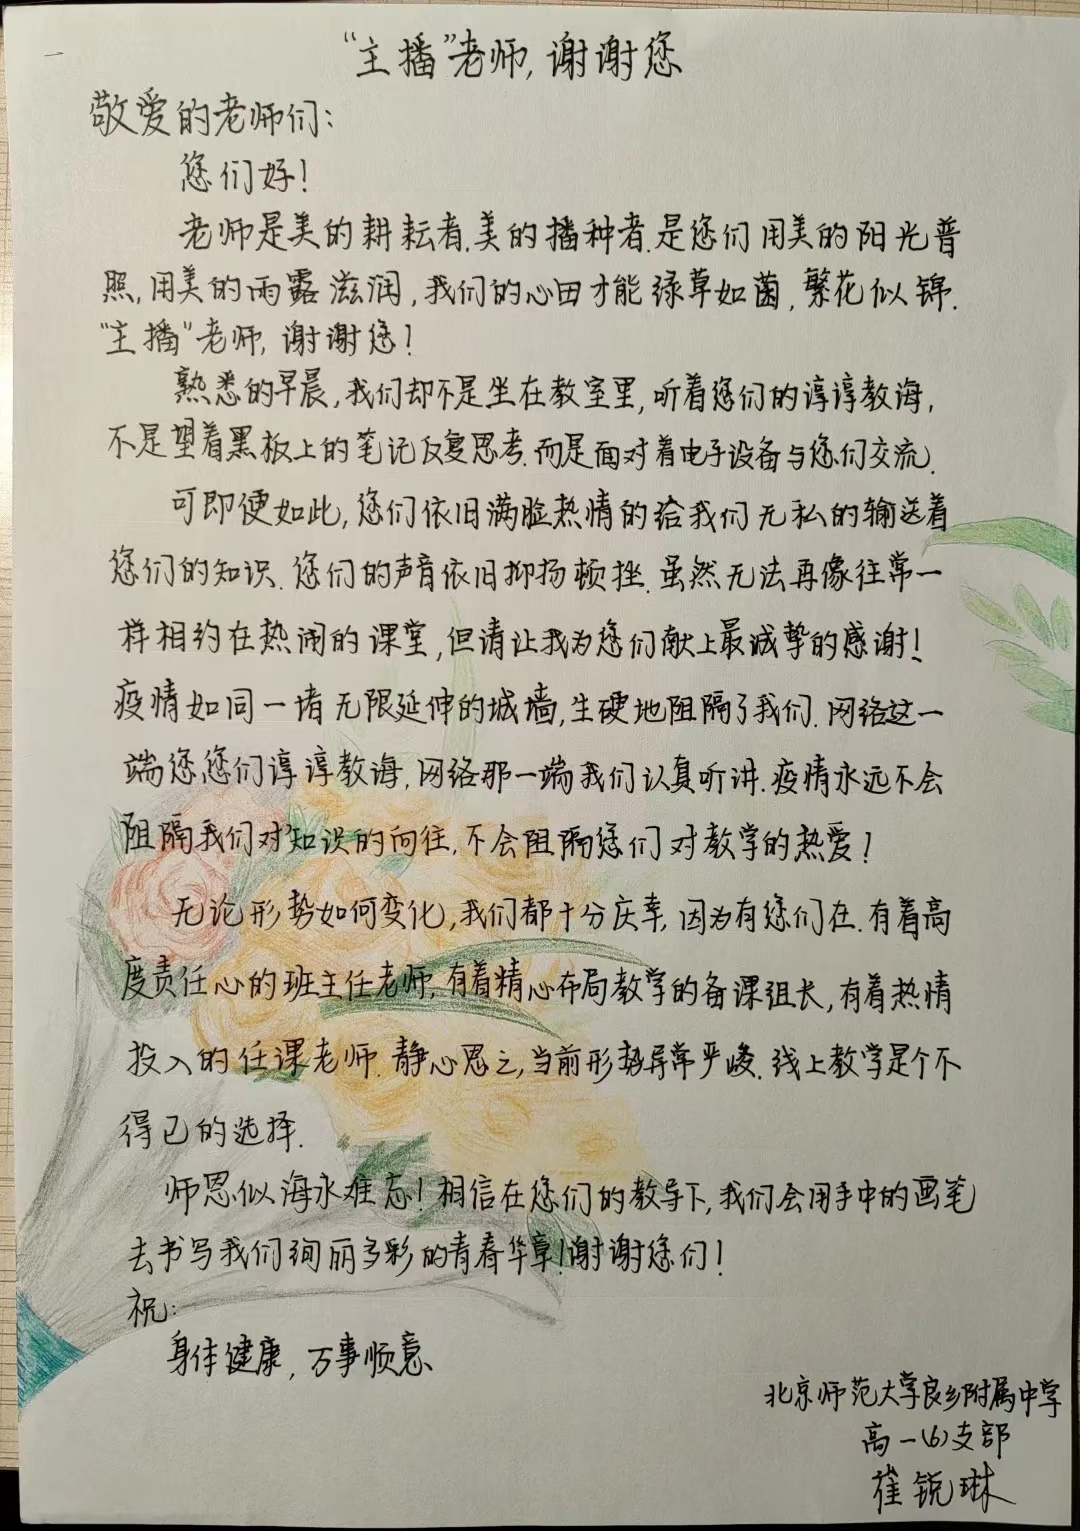 “主播”老师,谢谢您
敬爱的老师们:
您们好!
老师是美的耕耘者.美的播种者.是您们用美的阳光普
照,用美的雨露滋润,我们的心田才能绿草如茵,繁花似锦.
“主播”老师,谢谢您!
熟悉的早晨,我们却不是坐在教室里,听着您们的谆谆教诲,
不是望着黑板上的笔记反复思考.而是面对着电子设备与您们交流.
可即便如此,您们依旧满脸热情的给我们无私的输送着
您们的知识.您们的声音依旧抑扬顿挫.虽然无法再像往常一
样相约在热闹的课堂,但请让我为您们献上最诚挚的感谢!
疫情如同一堵无限延伸的城墙,生硬地阻隔了我们.网络这一
端您您们谆谆教诲,网络那一端我们认真听讲.疫情永远不会
阻隔我们对知识的向往,不会阻隔您们对教学的热爱!
无论形势如何变化,我们都十分庆幸,因为有您们在.有着高
度责任心的班主任老师,有着精心布局教学的备课组长,有着热情
投入的任课老师.静心思之,当前形势异常严峻.线上教学是个不
得已的选择.
师恩似海永难忘!相信在您们的教导下,我们会用手中的画笔
去书写我们绚丽多彩的青春华章!谢谢您们!
祝:
身体健康,万事顺意
北京师范大学良乡附属中学
高一(6)支部
崔锐琳